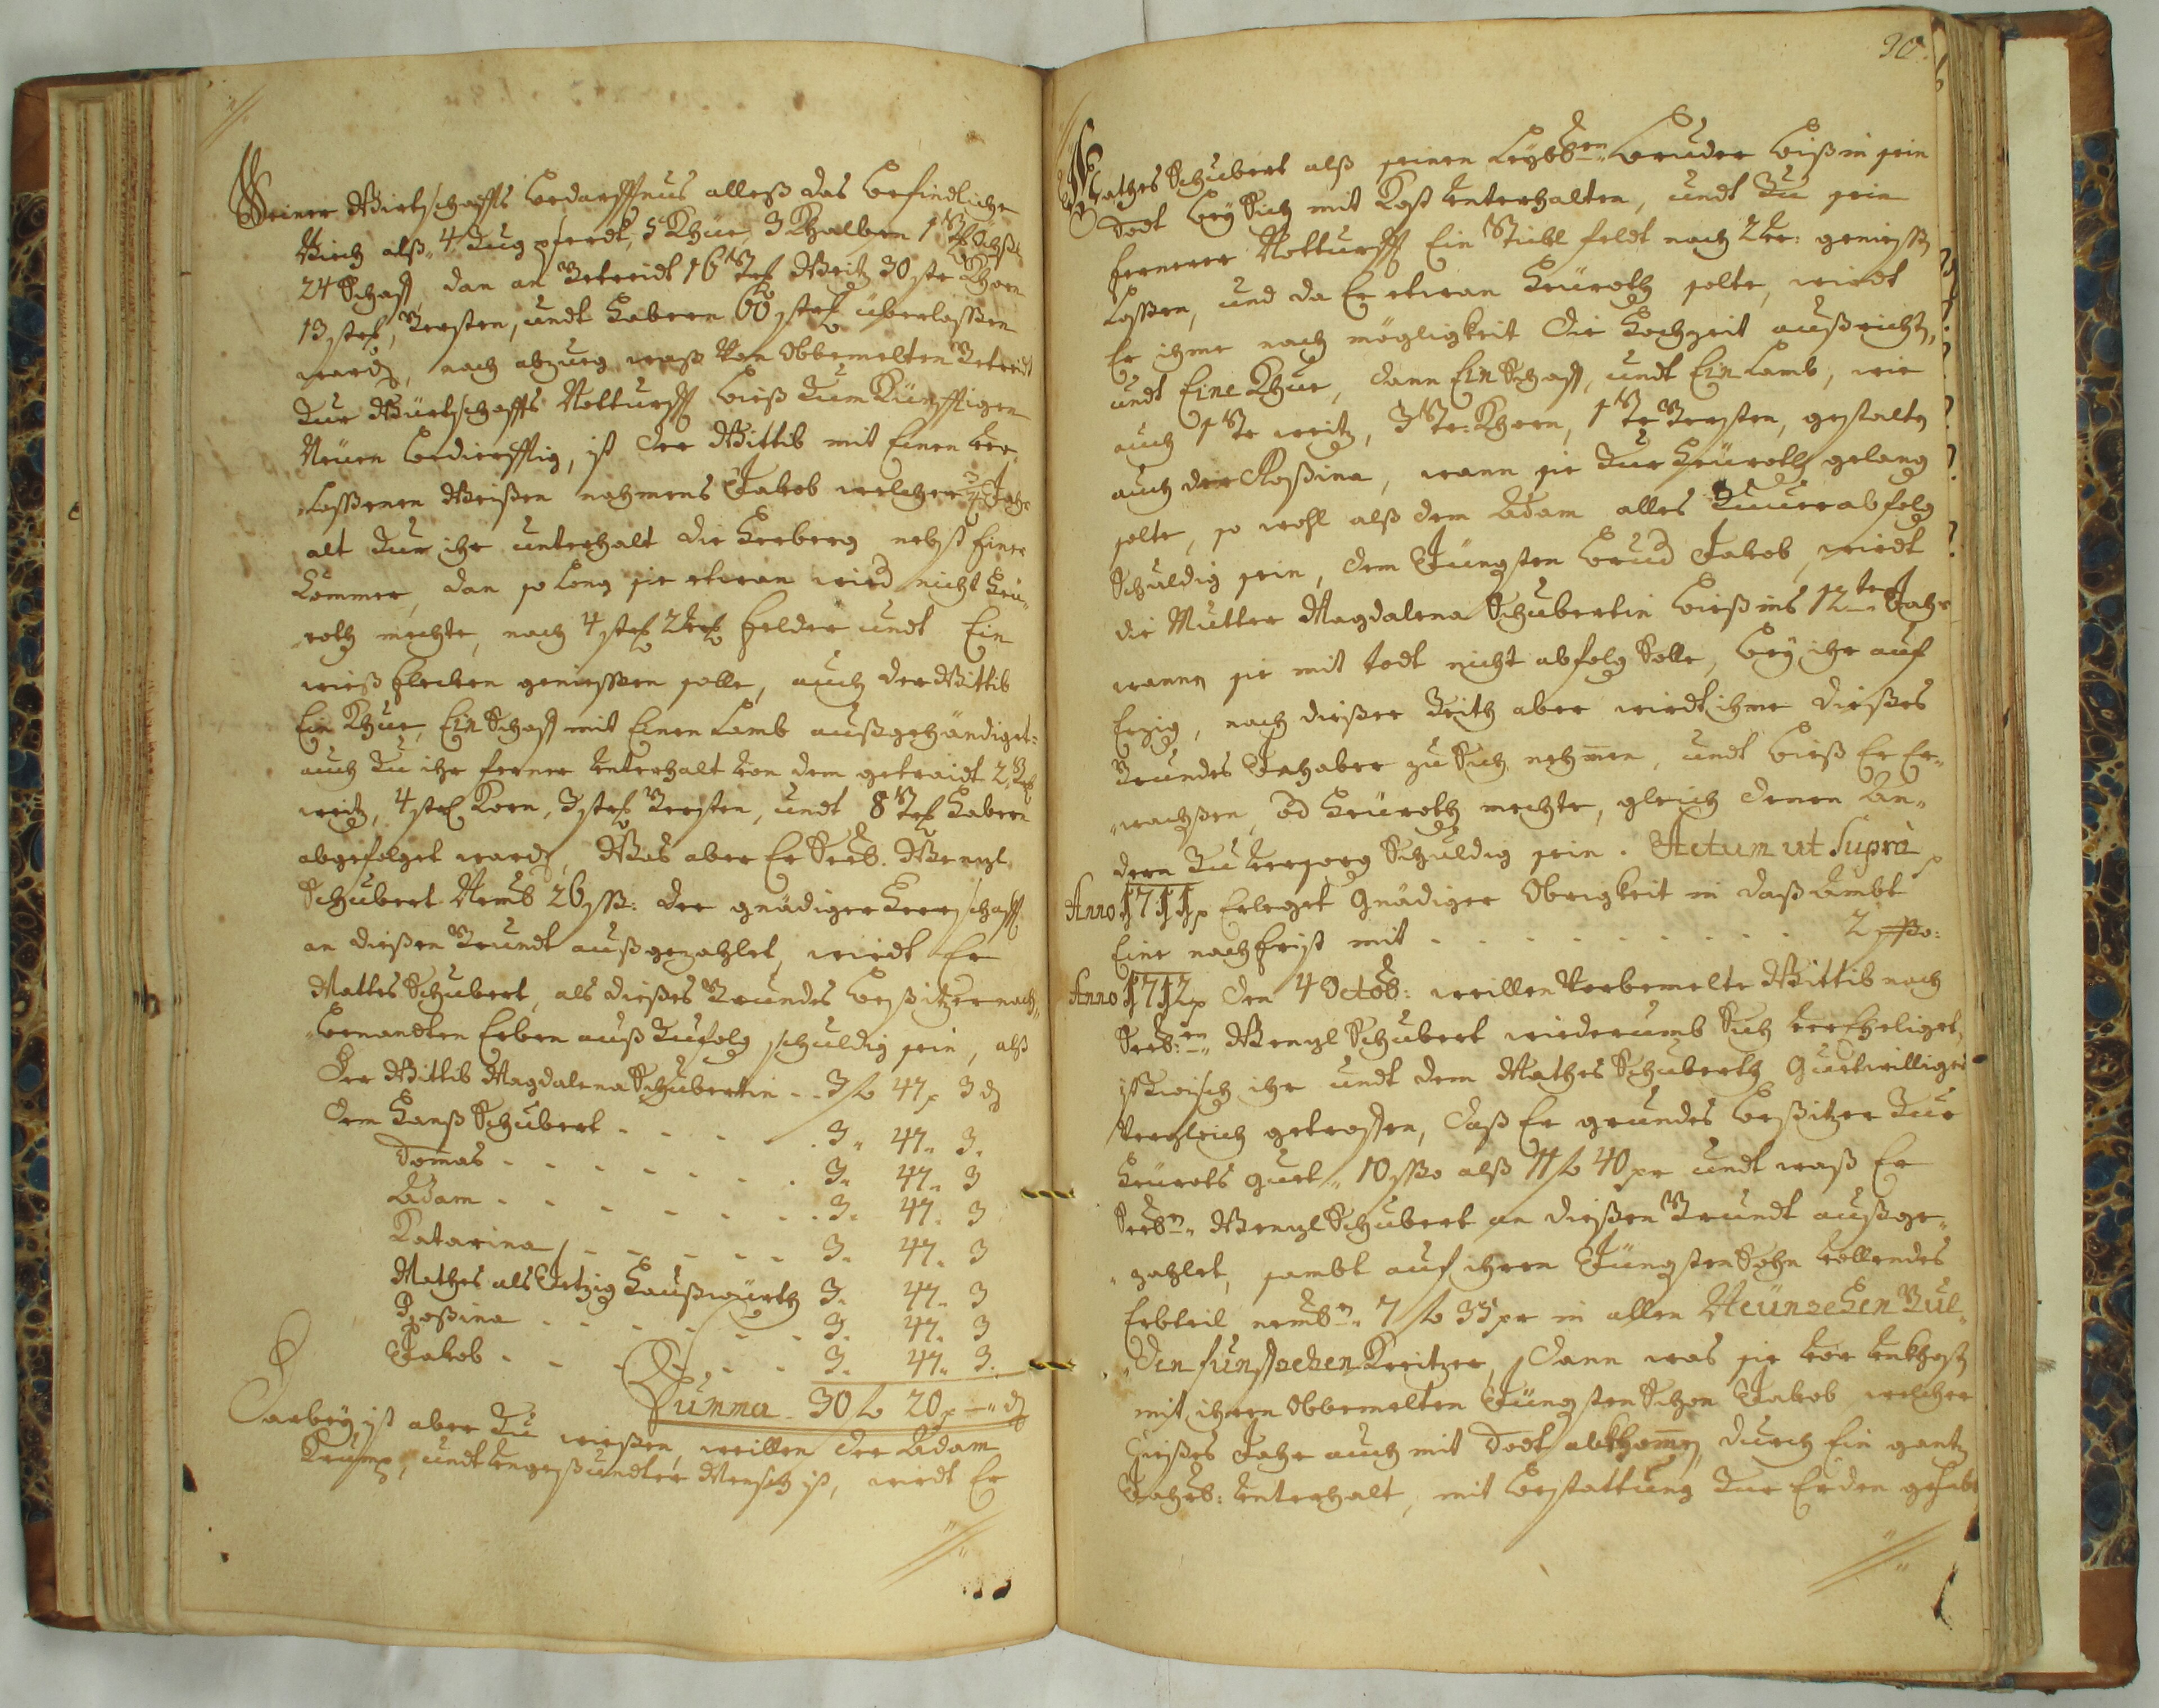 Seiner Wirtschaffts bedarffnus alleß das befindliche
Viech alß 4 Zug pferdt, 5 Khüe, 3 Khalben 1
24 Schaff, dan an Getreidt 16 Str Weitz 30 Str Khorn
13 Str Gersten, undt Habern 60 Str überlassen
ward, nach abzueg waß von Obbemelten Getreidt
Zur Würtschaffts Notturfft bieß Zum Künfftigen
Neuen bedürfftig, ist der Wittib mit Einen ver-
lassenen Weißen nahmens Jakob welcher 3/4 Jahr
alt Zur ihr unterhalt die Herberg nebst Einer
Kammer, dan so lang sie etwan wied nicht heü-
rath mechte, nach 4 Str 2 vrl Felder undt Ein
wieß flecken geniessen solle, auch der Wittib
Ein Khue, Ein Schaff mit Einen Lamb außgehändiget
auch Zu ihr ferner unterhalt von dem getraidt 2 Str
weitz, 4 Str Korn, 3 Str Gersten, undt 8 Str Habern
abgefolget ward, Was aber Er Seel. Wenzl
Schubert Nemb 26 ß: der gnädigen Herrschafft
an dießen Grundt außgezahlet, wirdt Er
Mattes Schubert, als dießes Grundes besitzer nach
benandten Erben auß Zufolg schuldig sein, alß
Der Wittib Magdalena Schubertin - - 3 f 47 x 3 d
Dem Hanß Schubert - - - - 3 " 47 " 3 "
Tomas - - - - - - - 3 " 47 " 3
Adam - - - - - - - 3 " 47 " 3
Katarina - - - - - 3 " 47 " 3
Mathes als Jetzig Haußwürth 3 " 47 " 3
Roßina - - - - - - 3 " 47 " 3
Jakob - - - - - - 3 " 47 " 3
Summa - 30 f 20 x - " d
Darbey ist aber Zu wießen, weillen der Adam
Krump, undt ungesundter Mensch ist, wirdt Er
90.
Mathes Schubert alß seinen Leybl. Bruder biß in sein
Todt bey Sich mit Kost unterhalten, undt Zu sein
fernerer Notturfft Ein Stückl feldt nach 2 vrl: geniessen
lassen, und da Er etwan heürath solte, wirdt
Er ihme nach mögligkeit die Hochzeit außrichten,
undt Eine Khue, dann Ein Schaff, undt Ein Lamb, wie
auch 1 Str weitz, 3 Str: Khorn, 1 Str Gersten, gestalten
auch der Roßina, wann sie Zur heürath gelang
solte, so wohl alß dem Adam alles Zuuerabfolg
Schuldig sein, dem Jüngsten brud Jakob, wirdt
die Mutter Magdalena Schubertin bieß ins 12te Jahr
wann sie mit todt nicht abfolg Solle, bey ihr auf
Erzig, nach dießer Zeith aber wirdt ihme dießes
Grundes Inhaber zu Sich nehmen, undt bieß Er Er-
wachßen, od heürath mechte, gleich denen An-
dern Zu versorg Schuldig sein. Actum ut Supra
Anno 1711 Erleget Gnädiger Obrigkeit in daß Ambt
Eine nach frist mit - - - - - - - - 2 ßo:
Anno 1712 den 4 Octob: weillen Vorbemelte Wittib nach
Seel: Wenzl Schubert wiederumb Sich verEheliget,
ist Zwisch ihr undt dem Mathes Schuberth Guttwilliger
Vergleich getroffen, daß Er grundes besitzer Zur
heürats guet " 10 ßo alß 11 f 40 xr undt waß Er
Seel. Wenzl Schubert an dießen Grundt außge-
zahlet, sambt auf ihren Jüngsten Sohn kollendes
Erbteil nembl. 7 f 35 xr in allen Neünzehen Gul-
den funffzehen Kreitzer, dann was sie vor unkhost
mit ihren Obbemelten Jüngsten Sohn Jakob welcher
dießes Jahr auch mit Todt abkhomen, durch Ein gantz
Jahrl: unterhalt, mit bestattung Zur Erden gehabt